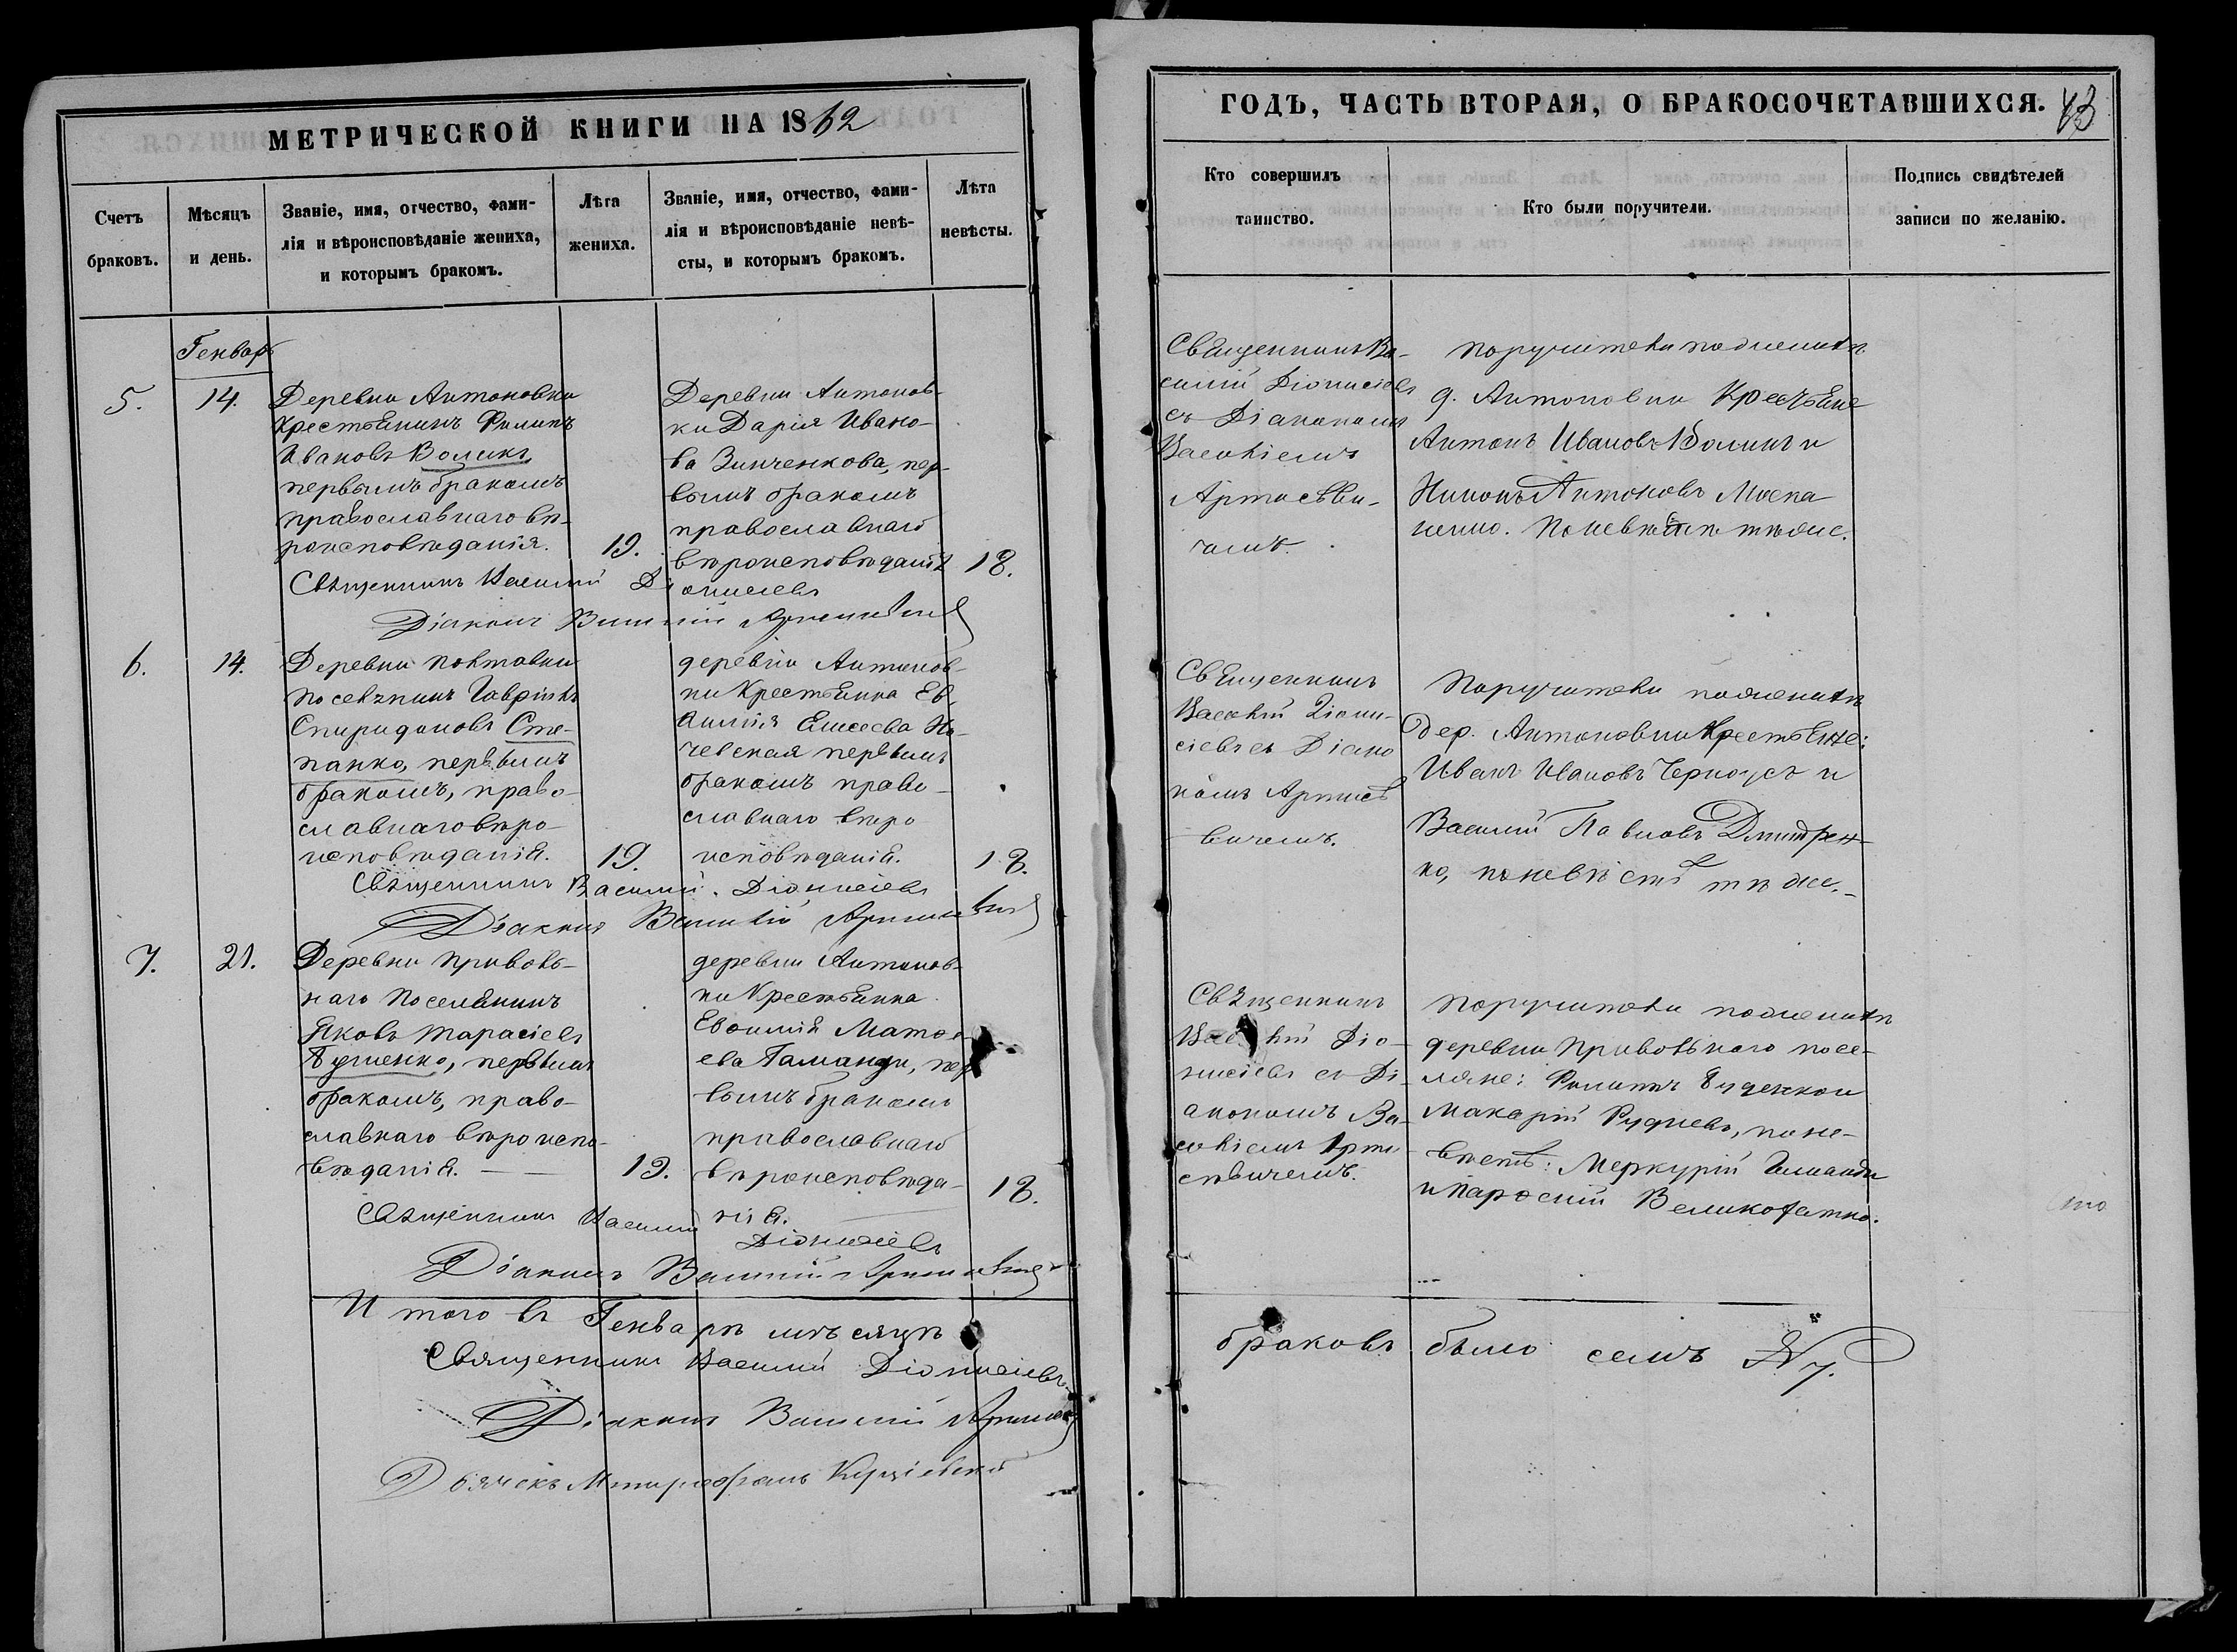 МЕТРИЧЕСКОЙ КНИГИ НА 1862
Счетъ браковъ.
Мѣсяцъ и день.
Званіе, имя, отчество, фами-
лія и вѣроисповѣданіе жениха,
и которымъ бракомъ.
Лѣта жениха.
Званіе, имя, отчество, фами-
лія и вѣроисповѣданіе невѣ-
сты, и которымъ бракомъ.
Лѣта невѣсты.
Генварь
5.
14.
Деревни Антоновки
крестьянинъ Филипъ
Ивановъ Воликъ,
первымъ бракомъ
православнаго вѣ-
роисповѣданія.
19.
Деревни Антонов-
ки Дарія Ивано-
ва Зинченкова, пер-
вымъ бракомъ
православнаго
вѣроисповѣданія
18.
Священникъ Василій Діонисіевъ
Діаконъ Василій
6.
14.
Деревни Полтавки
поселянинъ Гавріилъ
Спиридоновъ Сте-
панко, первымъ
бракомъ, право-
славнаго вѣро-
исповѣданія.
19.
деревни Антонов-
ки крестьянка Ев-
Елисеева
первымъ
бракомъ право-
славнаго вѣро
исповѣданія.
18.
Священникъ Василій Діонисіевъ
Діаконъ Василій
7.
21.
Деревни Приволь-
наго поселянинъ
Яковъ Тарасіевъ
первымъ
бракомъ, право-
славнаго вѣроиспо-
вѣданія.
19.
деревни Антонов-
ки крестьянка
Матѳ-
ева Гаманди, пер
вымъ бракомъ
православнаго
вѣроисповѣда-
нія.
18.
Священникъ Василій Діонисіевъ
Діаконъ Василій
Итого въ Генварѣ мѣсяцѣ
Священникъ Василій Діонисіевъ
Діаконъ Василій
Дьячекъ Митрофанъ
ГОДЪ, ЧАСТЬ ВТОРАЯ, О БРАКОСОЧЕТАВШИХСЯ.
43
Кто совершилъ таинство.
Кто были поручители.
Подпись свидѣтелей
записи по желанію.
Священникъ Ва-
силій Діонисіевъ
съ Діакономъ
Василіемъ
Поручители по женихѣ
д. Антоновки крестьяне
Антонъ Ивановъ Воликъ и
Антоновъ
По невѣстѣ тѣже.
Священникъ
Василій Діони-
сіевъ съ Діако
номъ
Поручители по женихѣ
дер. Антоновки крестьяне:
Иванъ Ивановъ Черноусъ и
Василій Павловъ Дмитрен-
ко, по невѣстѣ тѣже.
Священникъ
Василій Діо-
нисіевъ съ Ді-
акономъ Ва-
силіемъ
Поручители по женихѣ
деревни Привольнаго посе-
ляне: Филипъ
Макарій Рудневъ, по не-
вѣстѣ: Меркурій Гаманди
и
браковъ было семь № 7.